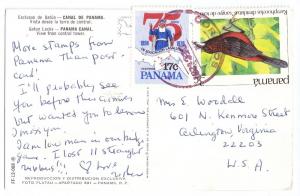 Esclusas de Gatún - CANAL DE PANAMA.
Vista desde la torre de control.
Gatun Locks - PANAMA CANAL.
View from control tower.
More stamps from
Panama than post
card!
I'll probably see
you before this arrives
but wanted you to know
I miss you.
I am low man in our bridge
game. I lost 11 straight
rubbers!!! Love
REPRODUCCION Y DISTRIBUCION EXCLUSIVA
FOTO FLATAU - APARTADO 891 - PANAMA, R. P.
75
17c
PANAMA
panamá
Mrs E Wordell
601 N. Kenmore Street
Arlington, Virginia
22203
U.S.A.